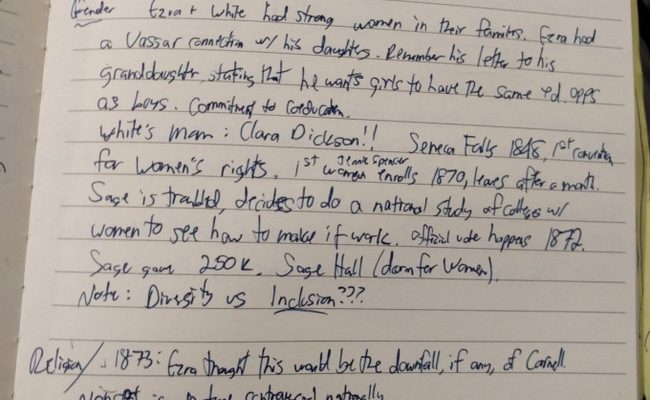 Gender Ezra + White had strong women in their families. Ezra had
a Vassar connection w/ his daughters. Remember his letter to his
granddaughter stating that he wants girls to have the same ed. opps
as boys. Commitment to coeducation.
White's mom: Clara Dickson!! Seneca Falls 1848, 1st convention
Jennie Spencer
for women's rights. 1st woman enrolls 1870, leaves after a month.
Sage is troubled, decides to do a national study of colleges w/
women to see how to make it work. official vote happens 1872.
Sage gave 250K. Sage Hall (dorm for women).
Note: Diversity vs Inclusion???
Religion/ 1873: Ezra thought this would be the downfall, if any, of Cornell.
nationally